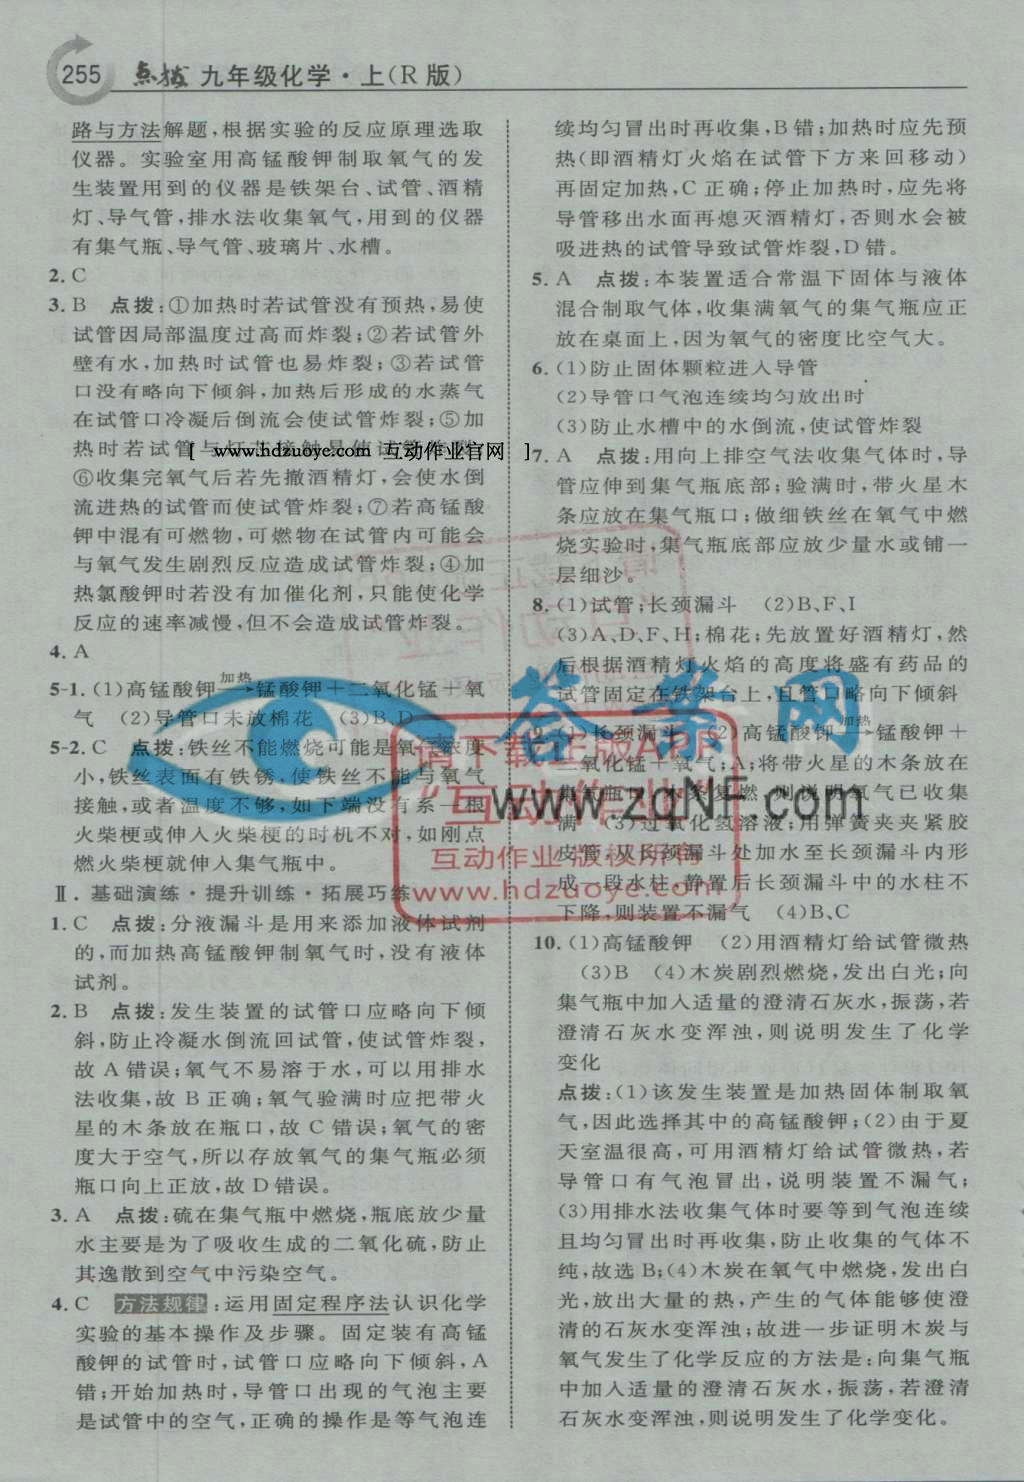 255 点拨 九年级化学·上(R版)
路与方法解题,根据实验的反应原理选取
仪器。实验室用高锰酸钾制取氧气的发
生装置用到的仪器是铁架台、试管、酒精
灯、导气管,排水法收集氧气,用到的仪器
有集气瓶、导气管、玻璃片、水槽。
2. C
3. B 点拨:①加热时若试管没有预热,易使
试管因局部温度过高而炸裂;②若试管外
壁有水,加热时试管也易炸裂;③若试管
口没有略向下倾斜,加热后形成的水蒸气
在试管口冷凝后倒流会使试管炸裂;⑤加
热时若试管与灯芯接触易使试管炸裂;
[ www.hdzuoye.com 互动作业官网 ]
⑥收集完氧气后若先撤酒精灯,会使水倒
流进热的试管而使试管炸裂;⑦若高锰酸
钾中混有可燃物,可燃物在试管内可能会
与氧气发生剧烈反应造成试管炸裂;④加
热氯酸钾时若没有加催化剂,只能使化学
反应的速率减慢,但不会造成试管炸裂。
4. A
5-1. (1)高锰酸钾 加热→ 锰酸钾+二氧化锰+氧
气 (2)导管口未放棉花 (3)B、D
5-2. C 点拨:铁丝不能燃烧可能是氧气浓度
小,铁丝表面有铁锈,使铁丝不能与氧气
接触,或者温度不够,如下端没有系一根
火柴梗或伸入火柴梗的时机不对,如刚点
燃火柴梗就伸入集气瓶中。
Ⅱ. 基础演练·提升训练·拓展巧练
1. C 点拨:分液漏斗是用来添加液体试剂
的,而加热高锰酸钾制氧气时,没有液体
试剂。
2. B 点拨:发生装置的试管口应略向下倾
斜,防止冷凝水倒流回试管,使试管炸裂,
故 A 错误;氧气不易溶于水,可以用排水
法收集,故 B 正确;氧气验满时应把带火
星的木条放在瓶口,故 C 错误;氧气的密
度大于空气,所以存放氧气的集气瓶必须
瓶口向上正放,故 D 错误。
3. A 点拨:硫在集气瓶中燃烧,瓶底放少量
水主要是为了吸收生成的二氧化硫,防止
其逸散到空气中污染空气。
4. C 方法规律:运用固定程序法认识化学
实验的基本操作及步骤。固定装有高锰
酸钾的试管时,试管口应略向下倾斜,A
错;开始加热时,导管口出现的气泡主要
是试管中的空气,正确的操作是等气泡连
续均匀冒出时再收集,B 错;加热时应先预
热(即酒精灯火焰在试管下方来回移动)
再固定加热,C 正确;停止加热时,应先将
导管移出水面再熄灭酒精灯,否则水会被
吸进热的试管导致试管炸裂,D 错。
5. A 点拨:本装置适合常温下固体与液体
混合制取气体,收集满氧气的集气瓶应正
放在桌面上,因为氧气的密度比空气大。
6. (1)防止固体颗粒进入导管
(2)导管口气泡连续均匀放出时
(3)防止水槽中的水倒流,使试管炸裂
7. A 点拨:用向上排空气法收集气体时,导
管应伸到集气瓶底部;验满时,带火星木
条应放在集气瓶口;做细铁丝在氧气中燃
烧实验时,集气瓶底部应放少量水或铺一
层细沙。
8. (1)试管;长颈漏斗 (2)B、F、I
(3)A、D、F、H;棉花;先放置好酒精灯,然
后根据酒精灯火焰的高度将盛有药品的
试管固定在铁架台上,且管口略向下倾斜
9. (1)长颈漏斗 (2)高锰酸钾 加热→ 锰酸钾+
二氧化锰+氧气;A;将带火星的木条放在
集气瓶口,木条复燃,则说明氧气已收集
满 (3)过氧化氢溶液;用弹簧夹夹紧胶
皮管,从长颈漏斗处加水至长颈漏斗内形
成一段水柱,静置后长颈漏斗中的水柱不
下降,则装置不漏气 (4)B、C
10. (1)高锰酸钾 (2)用酒精灯给试管微热
(3)B (4)木炭剧烈燃烧,发出白光;向
集气瓶中加入适量的澄清石灰水,振荡,若
澄清石灰水变浑浊,则说明发生了化学
变化
点拨:(1)该发生装置是加热固体制取氧
气,因此选择其中的高锰酸钾;(2)由于夏
天室温很高,可用酒精灯给试管微热,若
导管口有气泡冒出,说明装置不漏气;
(3)用排水法收集气体时要等到气泡连续
且均匀冒出时再收集,防止收集的气体不
纯,故选 B;(4)木炭在氧气中燃烧,发出白
光,放出大量的热,产生的气体能够使澄
清的石灰水变浑浊;故进一步证明木炭与
氧气发生了化学反应的方法是:向集气瓶
中加入适量的澄清石灰水,振荡,若澄清
石灰水变浑浊,则说明发生了化学变化。
答案网
www.zqNF.com
请下载正版APP
“互动作业”
互动作业 版权所有
www.hdzuoye.com